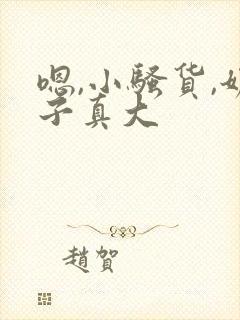 嗯,小騷货,奶
子真大
趙賀